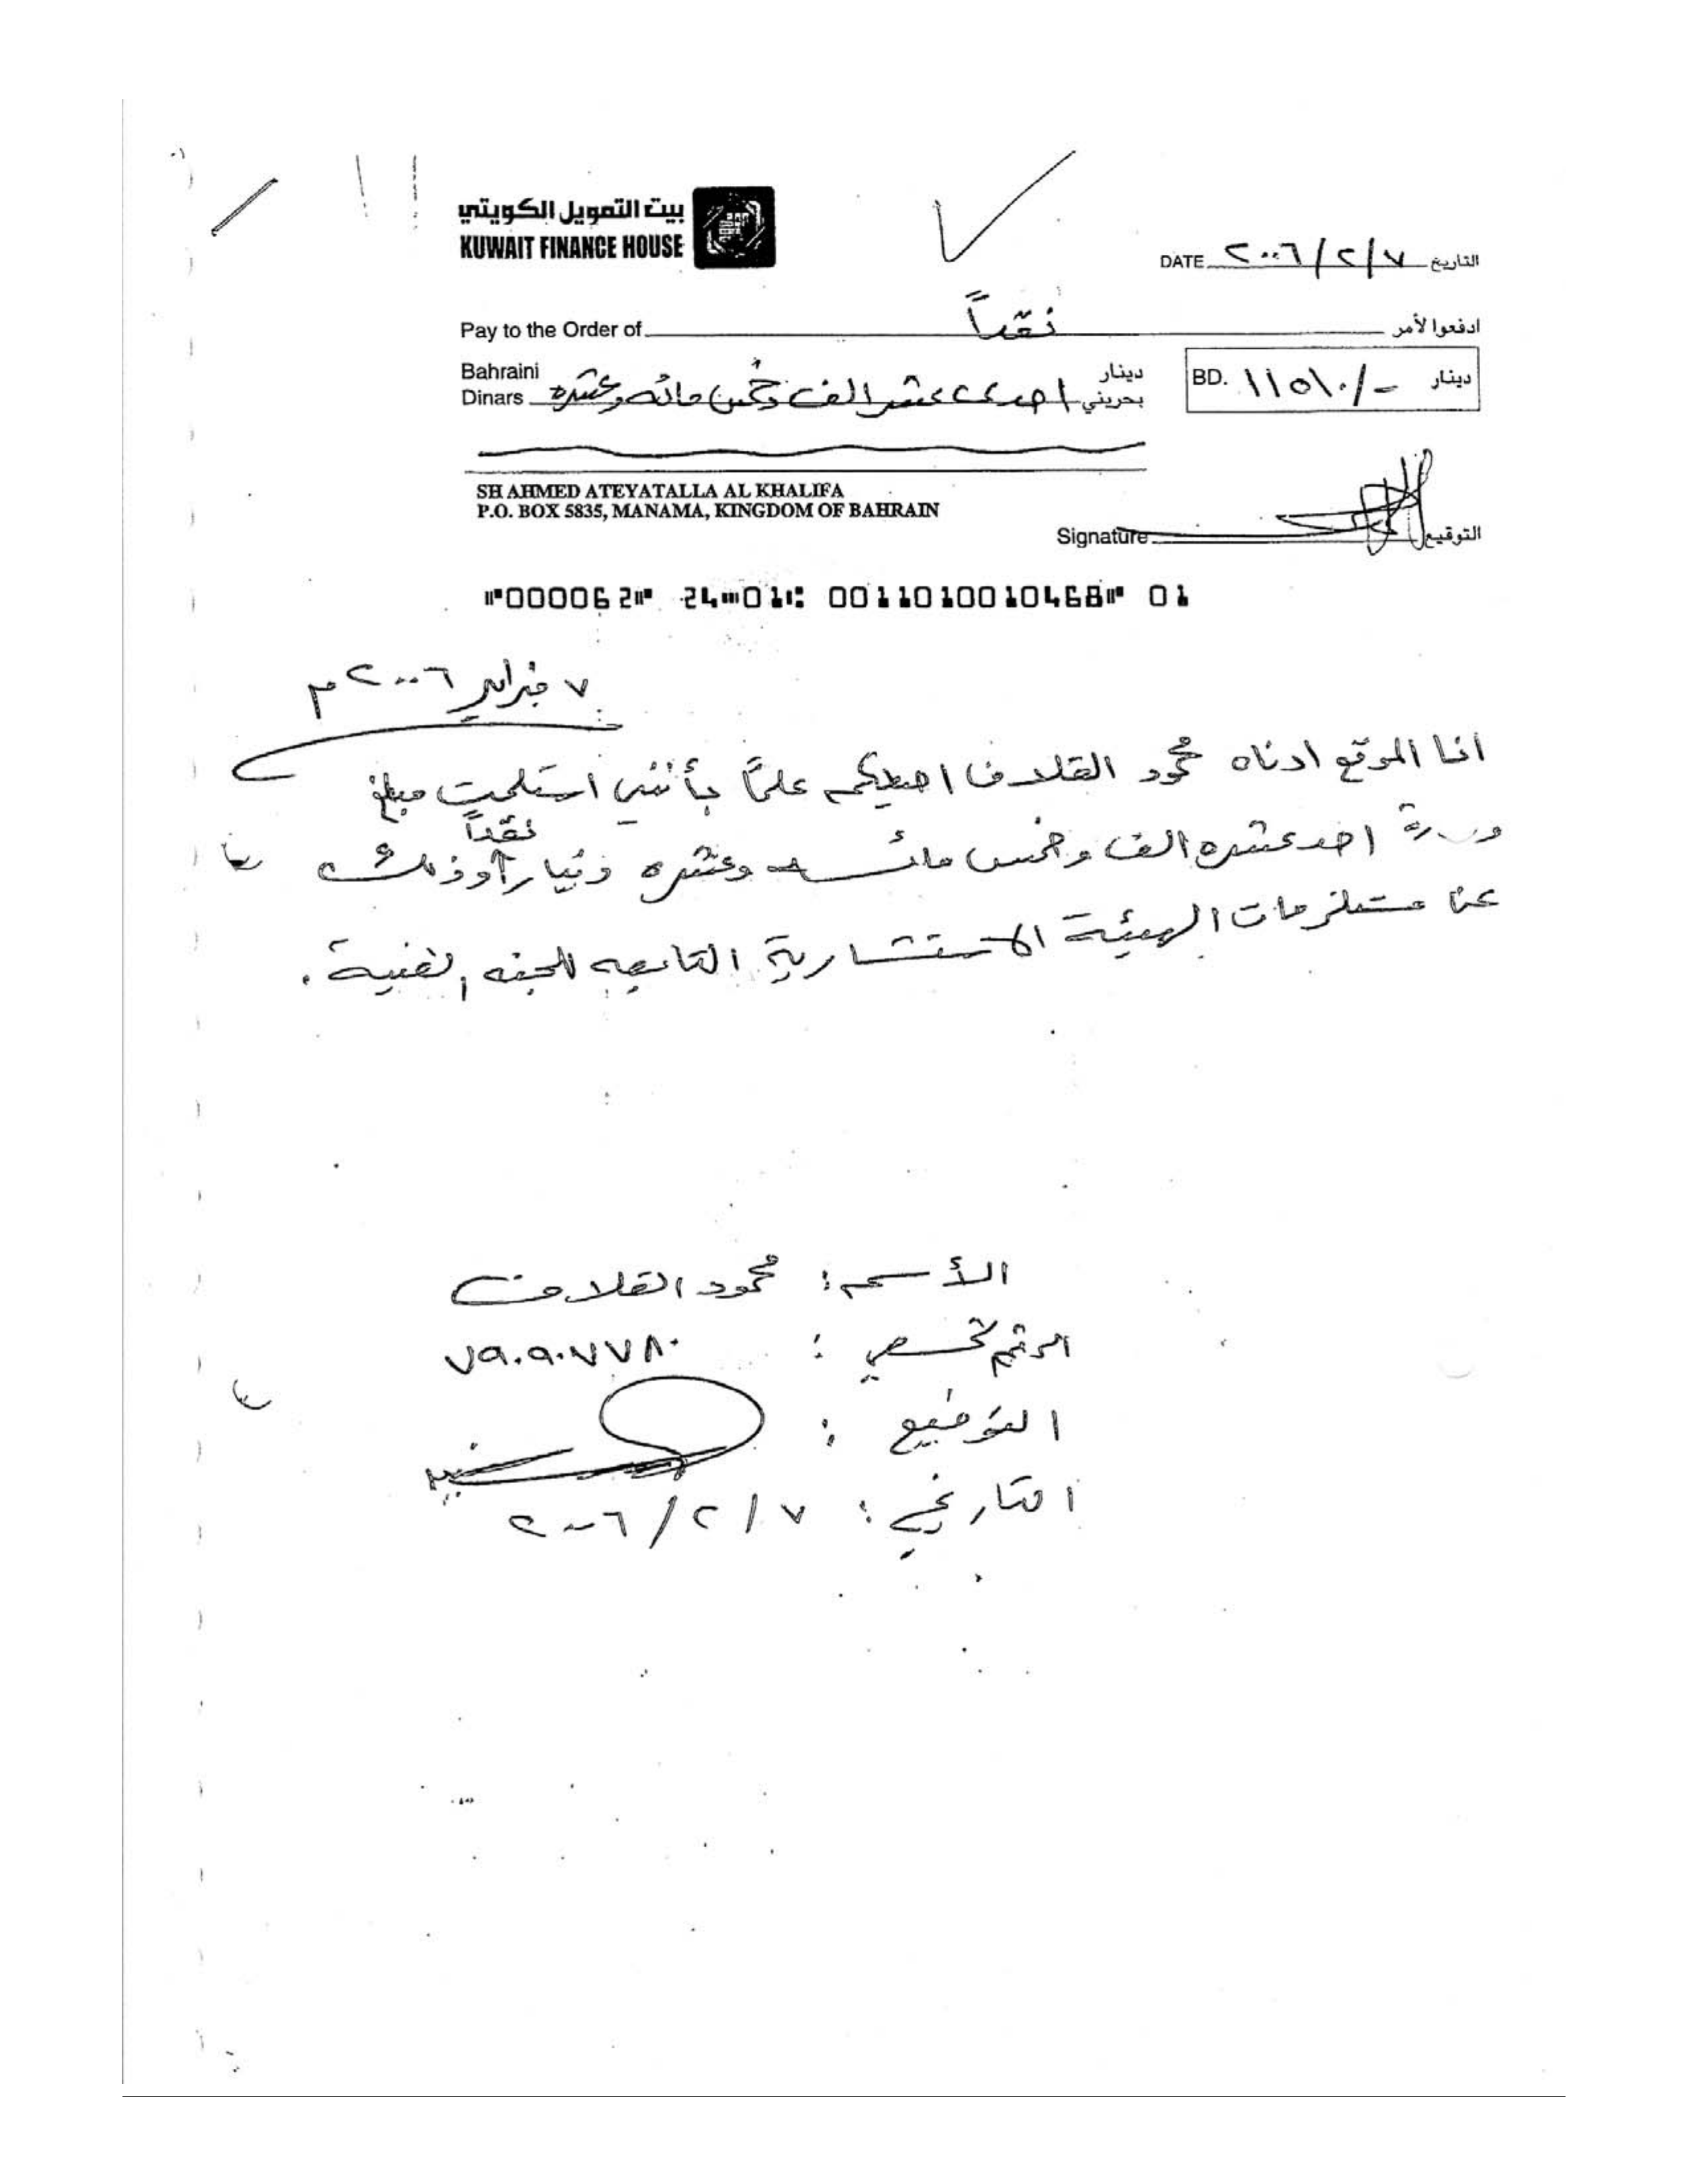 بيت التمويل الكويتي
KUWAIT FINANCE HOUSE
DATE ٢٠٠٦/٢/٧ التاريخ
Pay to the Order of نقداً ادفعوا لأمر
Bahraini Dinars احدى عشر الف وخمس مائه وعشره دينار بحريني
BD. ١١٥١٠/- دينار
SH AHMED ATEYATALLA AL KHALIFA
P.O. BOX 5835, MANAMA, KINGDOM OF BAHRAIN
Signature التوقيع
⑈000062⑈ 24⑉01⑆ 0011010010468⑈ 01
٧ فبراير ٢٠٠٦م
انا الموقع ادناه محمود القلاف احيطكم علماً بأنني استلمت مبلغ
نقداً
احد عشره الف وخمس مائه وعشره دنياراً وذلك
عن مستلزمات الهيئة الاستشارية التابعه للجنه الفنية.
الأسم: محمود القلاف
الرقم شخصي: ٧٩٠٩٠٧٧٨٠
التوقيع:
التاريخ: ٢٠٠٦/٢/٧